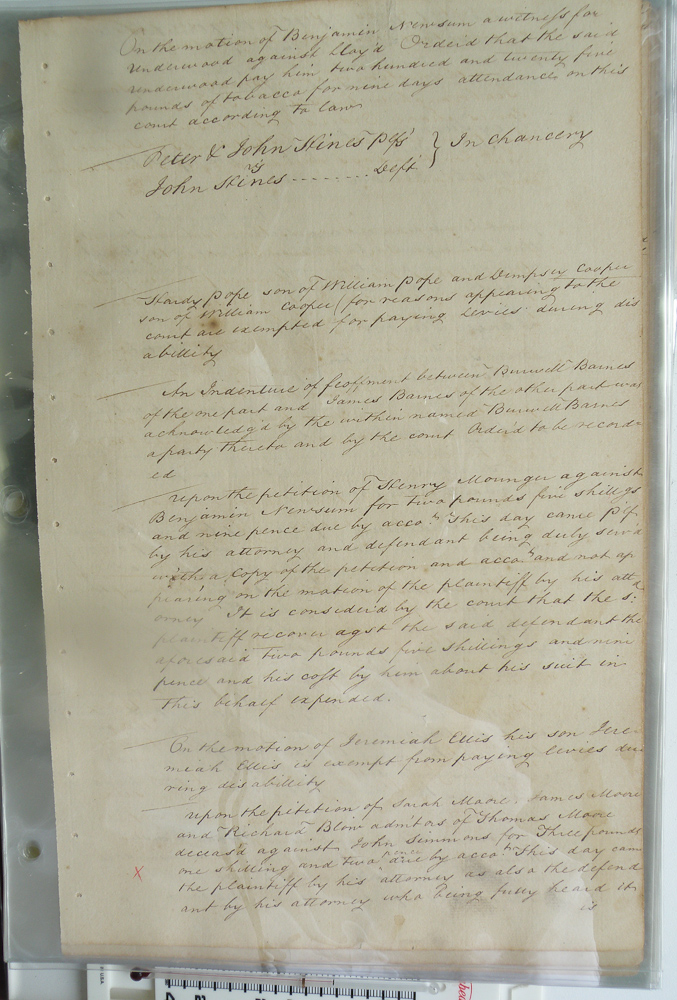 On the motion of Benjamin Newsum a witness for
Underwood against Lloyd Order'd that the said
Underwood pay him two hundred and twenty five
pounds of tobacco for nine days attendance on this
court according to law
Peter & John Hines Plfs } In Chancery
vs
John Hines - - - - - - - Deft
Hardy Pope son of William Pope and Dempsey Cooper
son of William Cooper (for reasons appearing to the
court are exempted for paying Levies during dis
abillity
An Indenture of feoffment between Burwell Barnes
of the one part and James Barnes of the other part was
acknowledg'd by the within named Burwell Barnes
a party thereto and by the court Order'd to be record
ed
upon the petition of Henry Mounger against
Benjamin Newsum for two pounds five shillgs
and nine pence due by acco.t This day came Plf
by his attorney and defendant being duly serv'd
with a Copy of the petition and acco.t and not ap
pearing on the motion of the plaintiff by his att
orney It is consider'd by the court that the s:
plaintiff recover agst the said defendant the
aforesaid two pounds five shillings and nine
pence and his cost by him about his suit in
this behalf expended.
On the motion of Jeremiah Ellis his son Jere
miah Ellis is exempt from paying levies du
ring desabillity
upon the petition of Sarah Moore, James Moore
and Richard Blow admtors of Thomas Moore
deceas'd against John Simmons for Three pounds
one shilling and two pence due by acco.t This day came
the plaintiff by his attorney as also the defend
ant by his attorney who being fully heard it
is
x